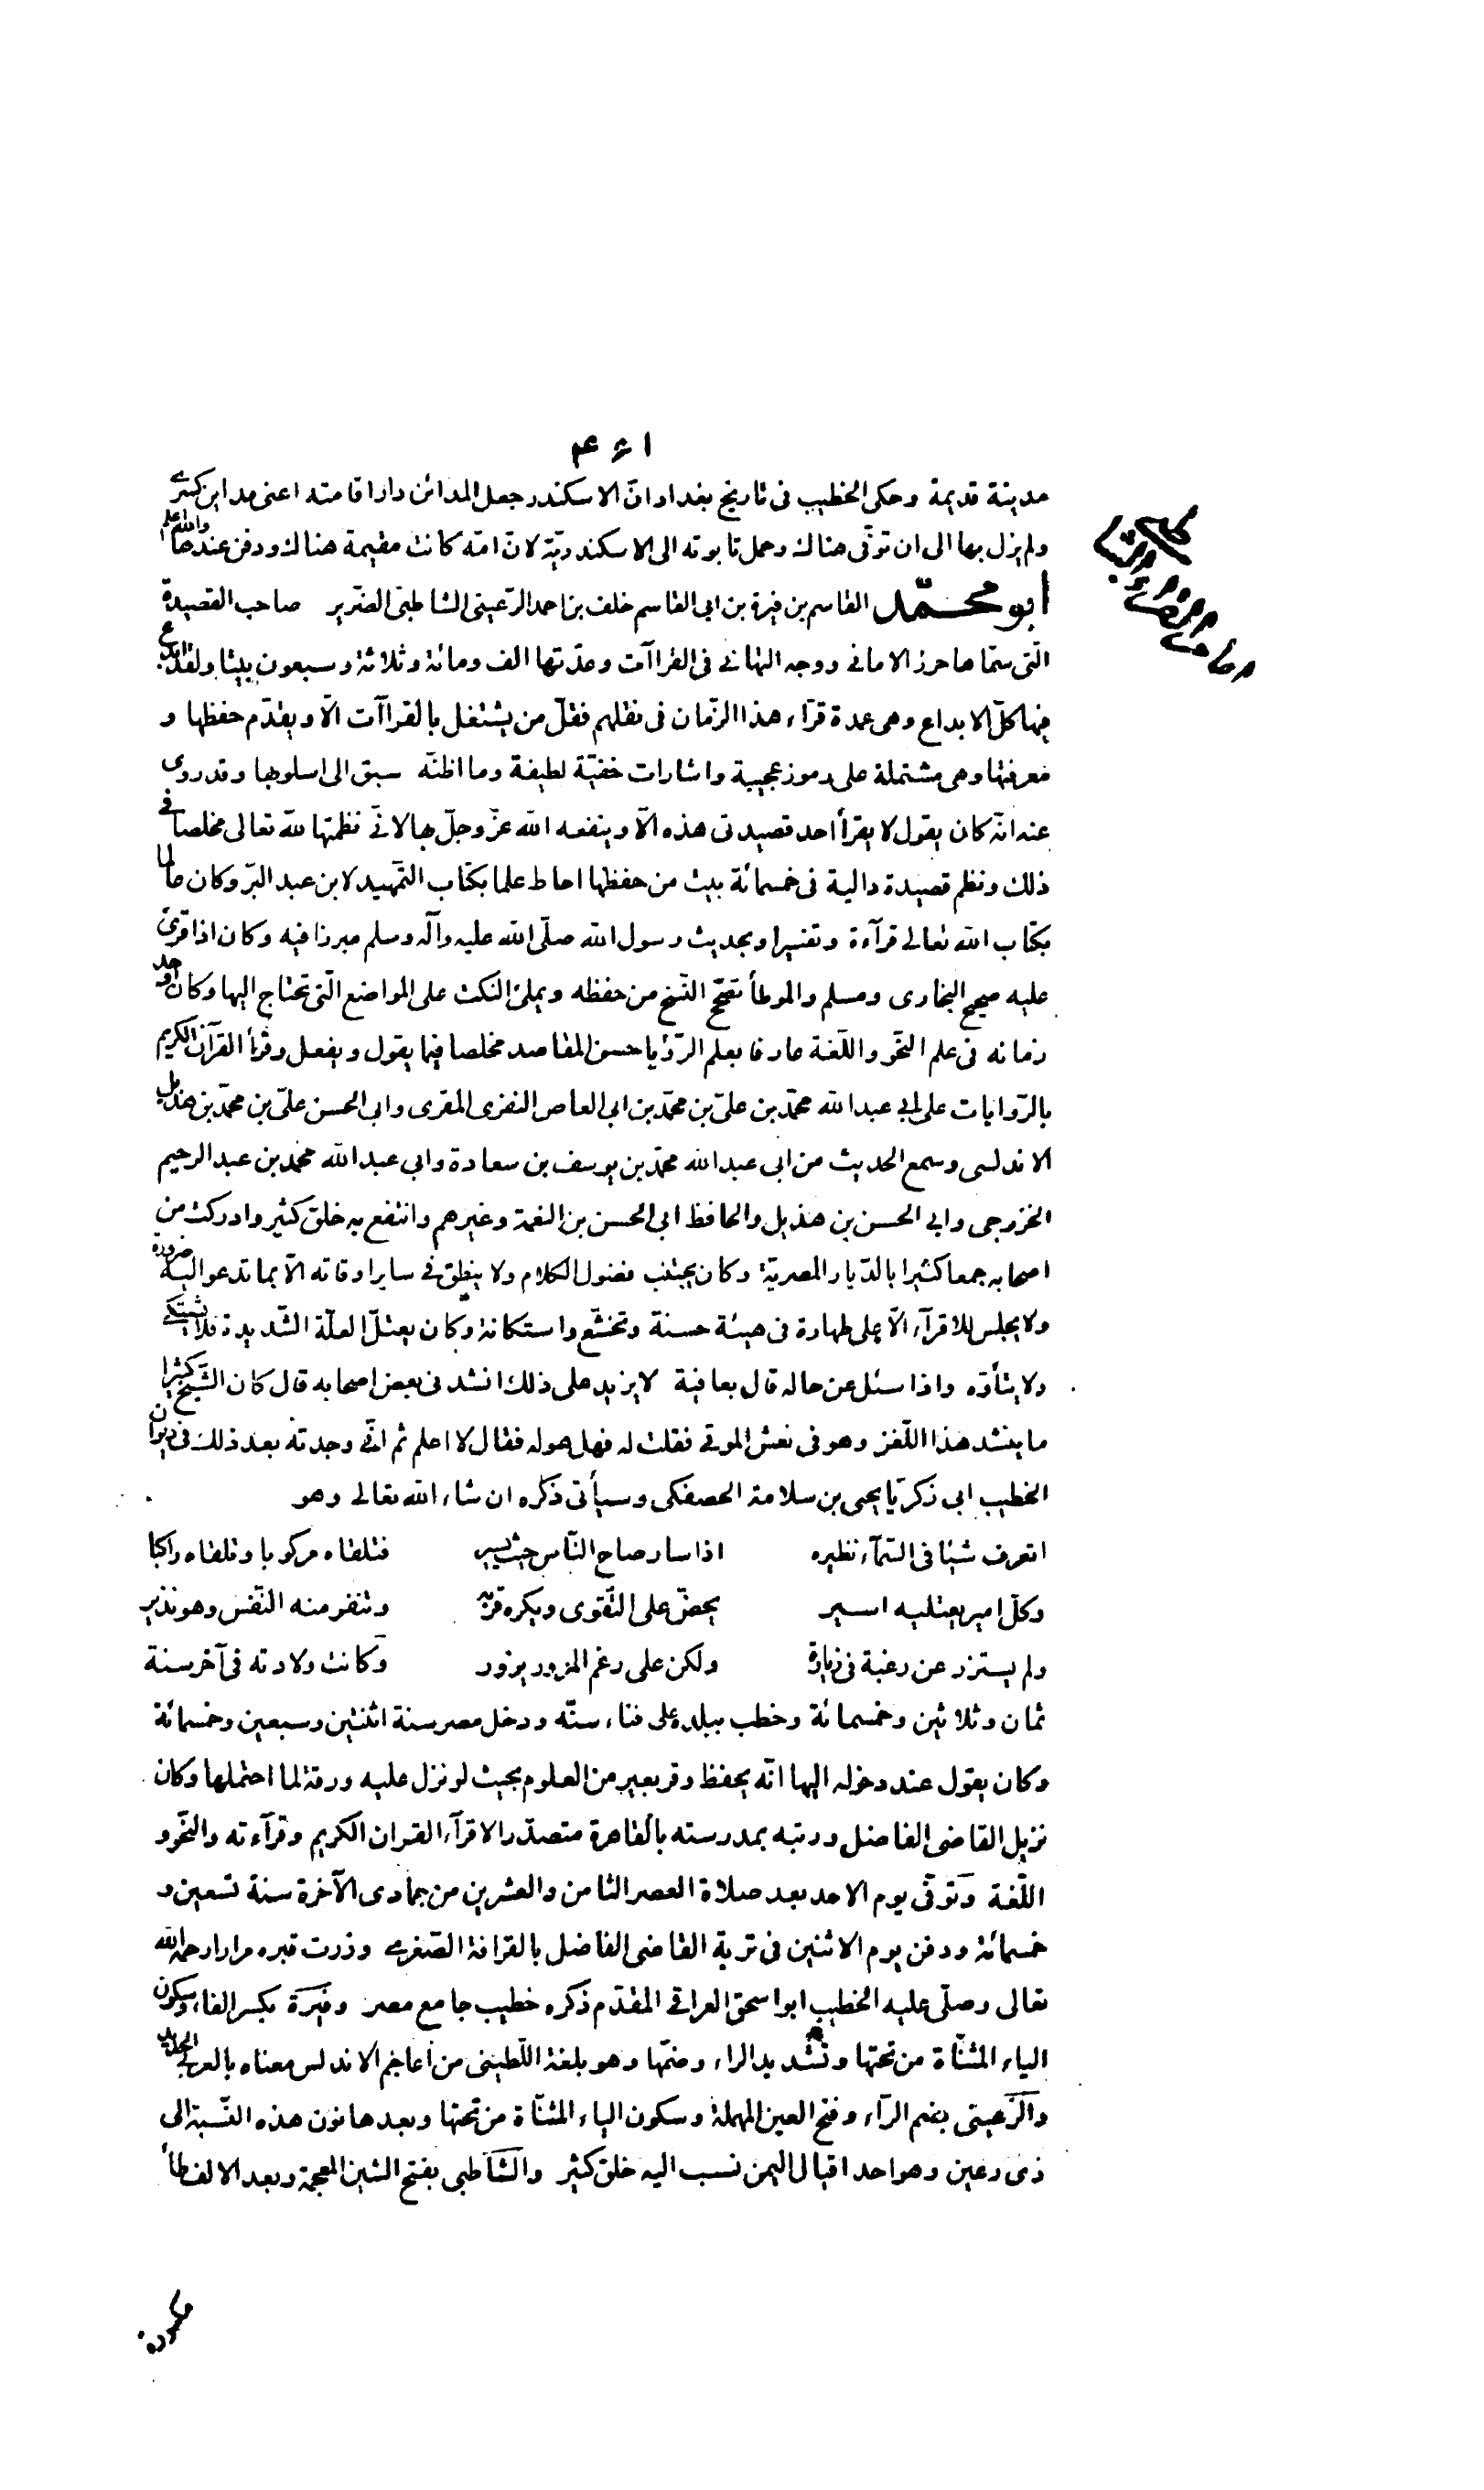 ۴۶۱
مدينة قديمة وحكى الخطيب فى تاريخ بغداد انّ الاسكندر جعل المدائن دار اقامته اعنى مداين كسرى
ولم يزل بها الى ان توفّى هناك وحمل تابوته الى الاسكندريّة لانّ امّه كانت مقيمة هناك ودفن عندها والله اعلم
أبو محمّد القاسم بن فيرة بن ابى القاسم خلف بن احمد الرّعينى الشاطبىّ الضّرير صاحب القصيدة
الّتى سمّاها حرز الامانى ووجه التهانى فى القراآت وعدّتها الف ومائة وثلاثة وسبعون بيتا ولقد ابدع
فيها كلّ الابداع وهى عمدة قرّاء هذا الزّمان فى نقلهم فقلّ من يشتغل بالقراآت الّا ويقدّم حفظها و
معرفتها وهى مشتملة على رموز عجيبة واشارات خفيّة لطيفة وما اظنّه سبق الى اسلوبها وقد روى
عنه انّه كان يقول لا يقرأ احد قصيدتى هذه الّا وينفعه الله عزّ وجلّ بها لانّى نظمتها للّه تعالى مخلصا فى
ذلك ونظم قصيدة دالية فى خمسمائة بيت من حفظها احاط علما بكتاب التمهيد لابن عبد البرّ وكان عالما
بكتاب الله تعالى قرآءة وتفسيرا وبحديث رسول الله صلّى الله عليه وآله وسلم مبرزا فيه وكان اذا قرئ
عليه صحيح البخارى ومسلم والموطأ تصحّح النّسخ من حفظه ويملئ النكت على المواضع الّتى تحتاج اليها وكان اوحد
زمانه فى علم النّحو واللّغة عارفا بعلم الرّؤيا حسن المقاصد مخلصا فيما يقول ويفعل وقرأ القرآن الكريم
بالرّوايات على ابى عبد الله محمّد بن علىّ بن محمّد بن ابى العاص النفزى المقرى وابى الحسن علىّ بن محمّد بن هذيل
الاندلسى وسمع الحديث من ابى عبد الله محمّد بن يوسف بن سعادة وابى عبد الله محمد بن عبد الرحيم
الخزرجى وابى الحسن بن هذيل والحافظ ابى الحسن بن النعمة وغيرهم وانتفع به خلق كثير وادركت من
اصحابه جمعا كثيرا بالدّيار المصريّة وكان يجتنب فضول الكلام ولا ينطق فى ساير اوقاته الّا بما تدعو اليه ضرورة
ولا يجلس للاقرآء الّا على طهارة فى هيئة حسنة وتخشّع واستكانة وكان يعتلّ العلّة الشّديدة فلا يشتكى
ولا يتأوّه واذا سئل عن حاله قال بعافية لا يزيد على ذلك انشدنى بعض اصحابه قال كان الشّيخ كثيرا
ما ينشد هذا اللّغز وهو فى نعش الموتى فقلت له فهل هو له فقال لا اعلم ثم انّى وجدته بعد ذلك فى ديوان
الخطيب ابى زكريّا يحيى بن سلامة الحصفكى وسيأتى ذكره ان شاء الله تعالى وهو
اتعرف شيئا فى السّمآء نظيره اذا سار صاح النّاس حيث يسير فتلقاه مركوبا وتلقاه راكبا
وكلّ امير يعتليه اسير يحضّ على التّقوى ويكره قربه وتنفر منه النّفس وهو نذير
ولم يستزر عن رغبة فى زيارة ولكن على رغم المزور يزور وكانت ولادته فى آخر سنة
ثمان وثلاثين وخمسمائة وخطب ببلده على فتاء سنّه ودخل مصر سنة اثنتين وسبعين وخمسمائة
وكان يقول عند دخوله اليها انّه يحفظ وقر بعير من العلوم بحيث لو نزل عليه ورقة لما احتملها وكان
نزيل القاضى الفاضل ورتبه بمدرسته بالقاهرة متصدّرا لاقرآء القران الكريم وقرآءته والنّحو و
اللّغة وتوفّى يوم الاحد بعد صلاة العصر الثامن والعشرين من جمادى الآخرة سنة تسعين و
خمسمائة ودفن يوم الاثنين فى تربة القاضى الفاضل بالقرافة الصّغرى وزرت قبره مرارا رحمه الله
تعالى وصلّى عليه الخطيب ابو اسحق العراقى المقدّم ذكره خطيب جامع مصر وفيرّة بكسر الفاء وسكون
الياء المثنّاة من تحتها وتشديد الراء وضمّها وهو بلغة اللّطينى من أعاجم الاندلس معناه بالعربى الحديد
والرّعينى بضم الرّآء وفتح العين المهملة وسكون الياء المثنّاة من تحتها وبعدها نون هذه النّسبة الى
ذى رعين وهو احد اقيال اليمن نسب اليه خلق كثير والشاطبى بفتح الشين المعجمة وبعد الالف طأ
مكسورة